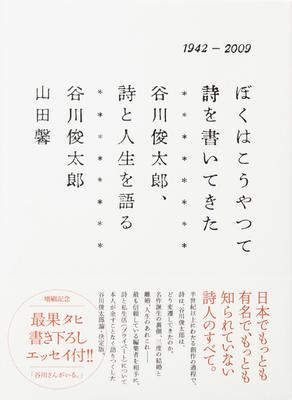 1942 – 2009
ぼくはこうやって
詩を書いてきた
＊＊＊＊＊＊＊＊
谷川俊太郎、
詩と人生を語る
＊＊＊＊＊＊＊＊
谷川俊太郎
山田馨
日本でもっとも
有名でもっとも
知られていない
詩人のすべて。
半世紀以上にわたる創作の過程で、
詩は、谷川俊太郎は、
どう変遷してきたのか。
名作誕生の裏側、三度の結婚と
離婚、人生のあれこれ——
最も信頼している編集者を相手に、
詩と私生活（プライベート）について
本人が余すことなく語りつくした
谷川俊太郎論・決定版。
増刷記念
最果タヒ
書き下ろし
エッセイ付!!
「谷川さんがいる。」